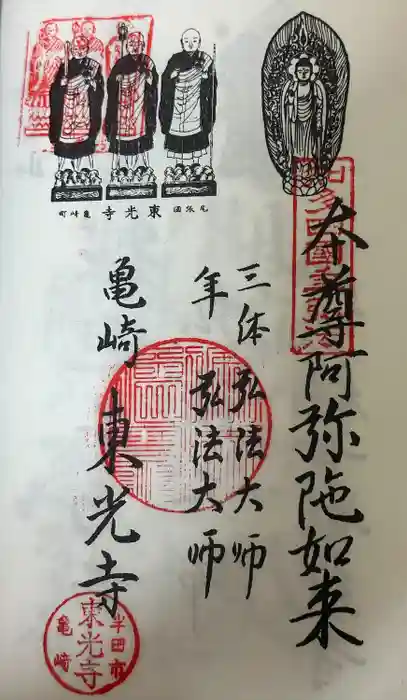 本尊阿弥陀如来
三体 弘法大师
年 弘法大师
亀崎 東光寺
尾張国 東光寺 亀崎町
半田市
東光寺
亀崎